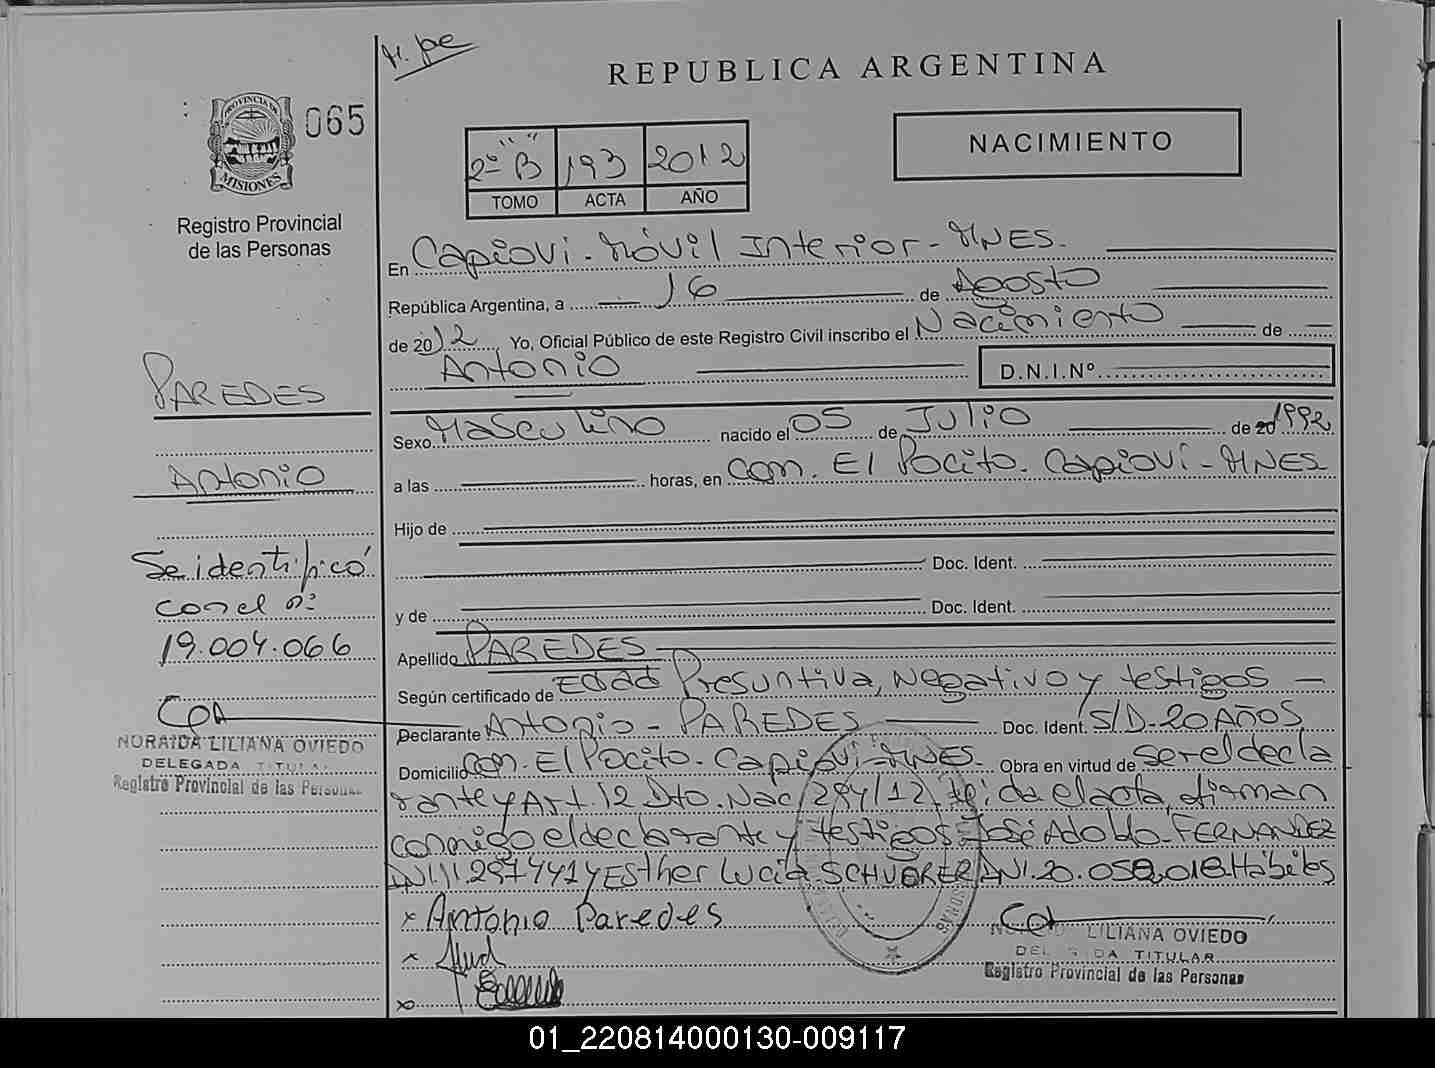 H. pe
REPUBLICA ARGENTINA
PROVINCIA DE
MISIONES
065
2º "B" 193 2012
TOMO ACTA AÑO
NACIMIENTO
Registro Provincial
de las Personas
En Capiovi - Móvil Interior - MNES.
República Argentina, a 16 de Agosto
de 2012 Yo, Oficial Público de este Registro Civil inscribo el Nacimiento de
Antonio D.N.I.Nº
PAREDES
Antonio
Se identificó
con el nº
19.004.066
NORAIDA LILIANA OVIEDO
DELEGADA TITULAR
Registro Provincial de las Personas
Sexo Masculino nacido el 05 de Julio de 20 1992
a las horas, en Con. El Pocito. Capioví - MNES
Hijo de
Doc. Ident.
y de Doc. Ident.
Apellido PAREDES
Según certificado de Edad Presuntiva, Negativo y testigos
Declarante Antonio - PAREDES Doc. Ident. S/D - 20 AÑOS
Domicilio Con. El Pocito. Capioví - MNES. Obra en virtud de ser el decla
rante y Art. 12 Dto. Nac. 294/12. leída el acta, firman
conmigo el declarante y testigos José Adoldo FERNANDEZ
y Esther Lucia SCHVORER DNI. 20.058.018. Hábiles
x Antonio Paredes
x
x
LILIANA OVIEDO
DELEGADA TITULAR
Registro Provincial de las Personas
01_220814000130-009117